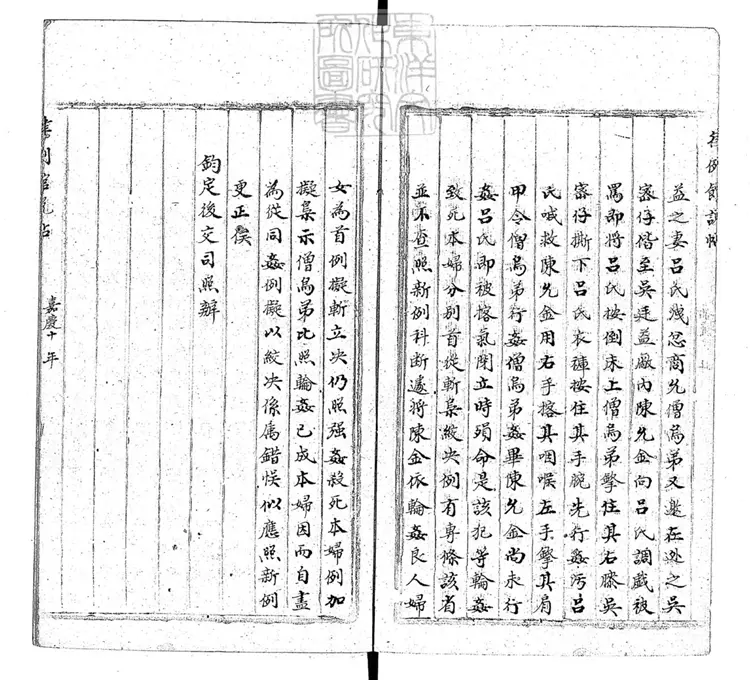 律例館說帖
益之妻呂氏殘忍商允僧為弟又邀在逃之吳
密仔偕至吳廷益廠內陳允金向呂氏調戲被
罵即將呂氏按倒床上僧為弟擎住其右膝吳
密仔撕下呂氏衣褲按住其手腕先行姦污呂
氏喊救陳允金用右手搭其咽喉左手擎其肩
甲令僧為弟行姦僧為弟姦畢陳允金尚未行
姦呂氏即被搭氣閉立時殞命是該犯等輪姦
致死本婦分別首從斬梟絞決例有專條該省
並不查照新例科斷遽將陳金依輪姦良人婦
女為首例擬斬立決仍照强姦殺死本婦例加
擬梟示僧為弟比照輪姦已成本婦因而自盡
為從同姦例擬以絞決係屬錯悞似應照新例
更正候
鈞定後交司照辦
嘉慶十年